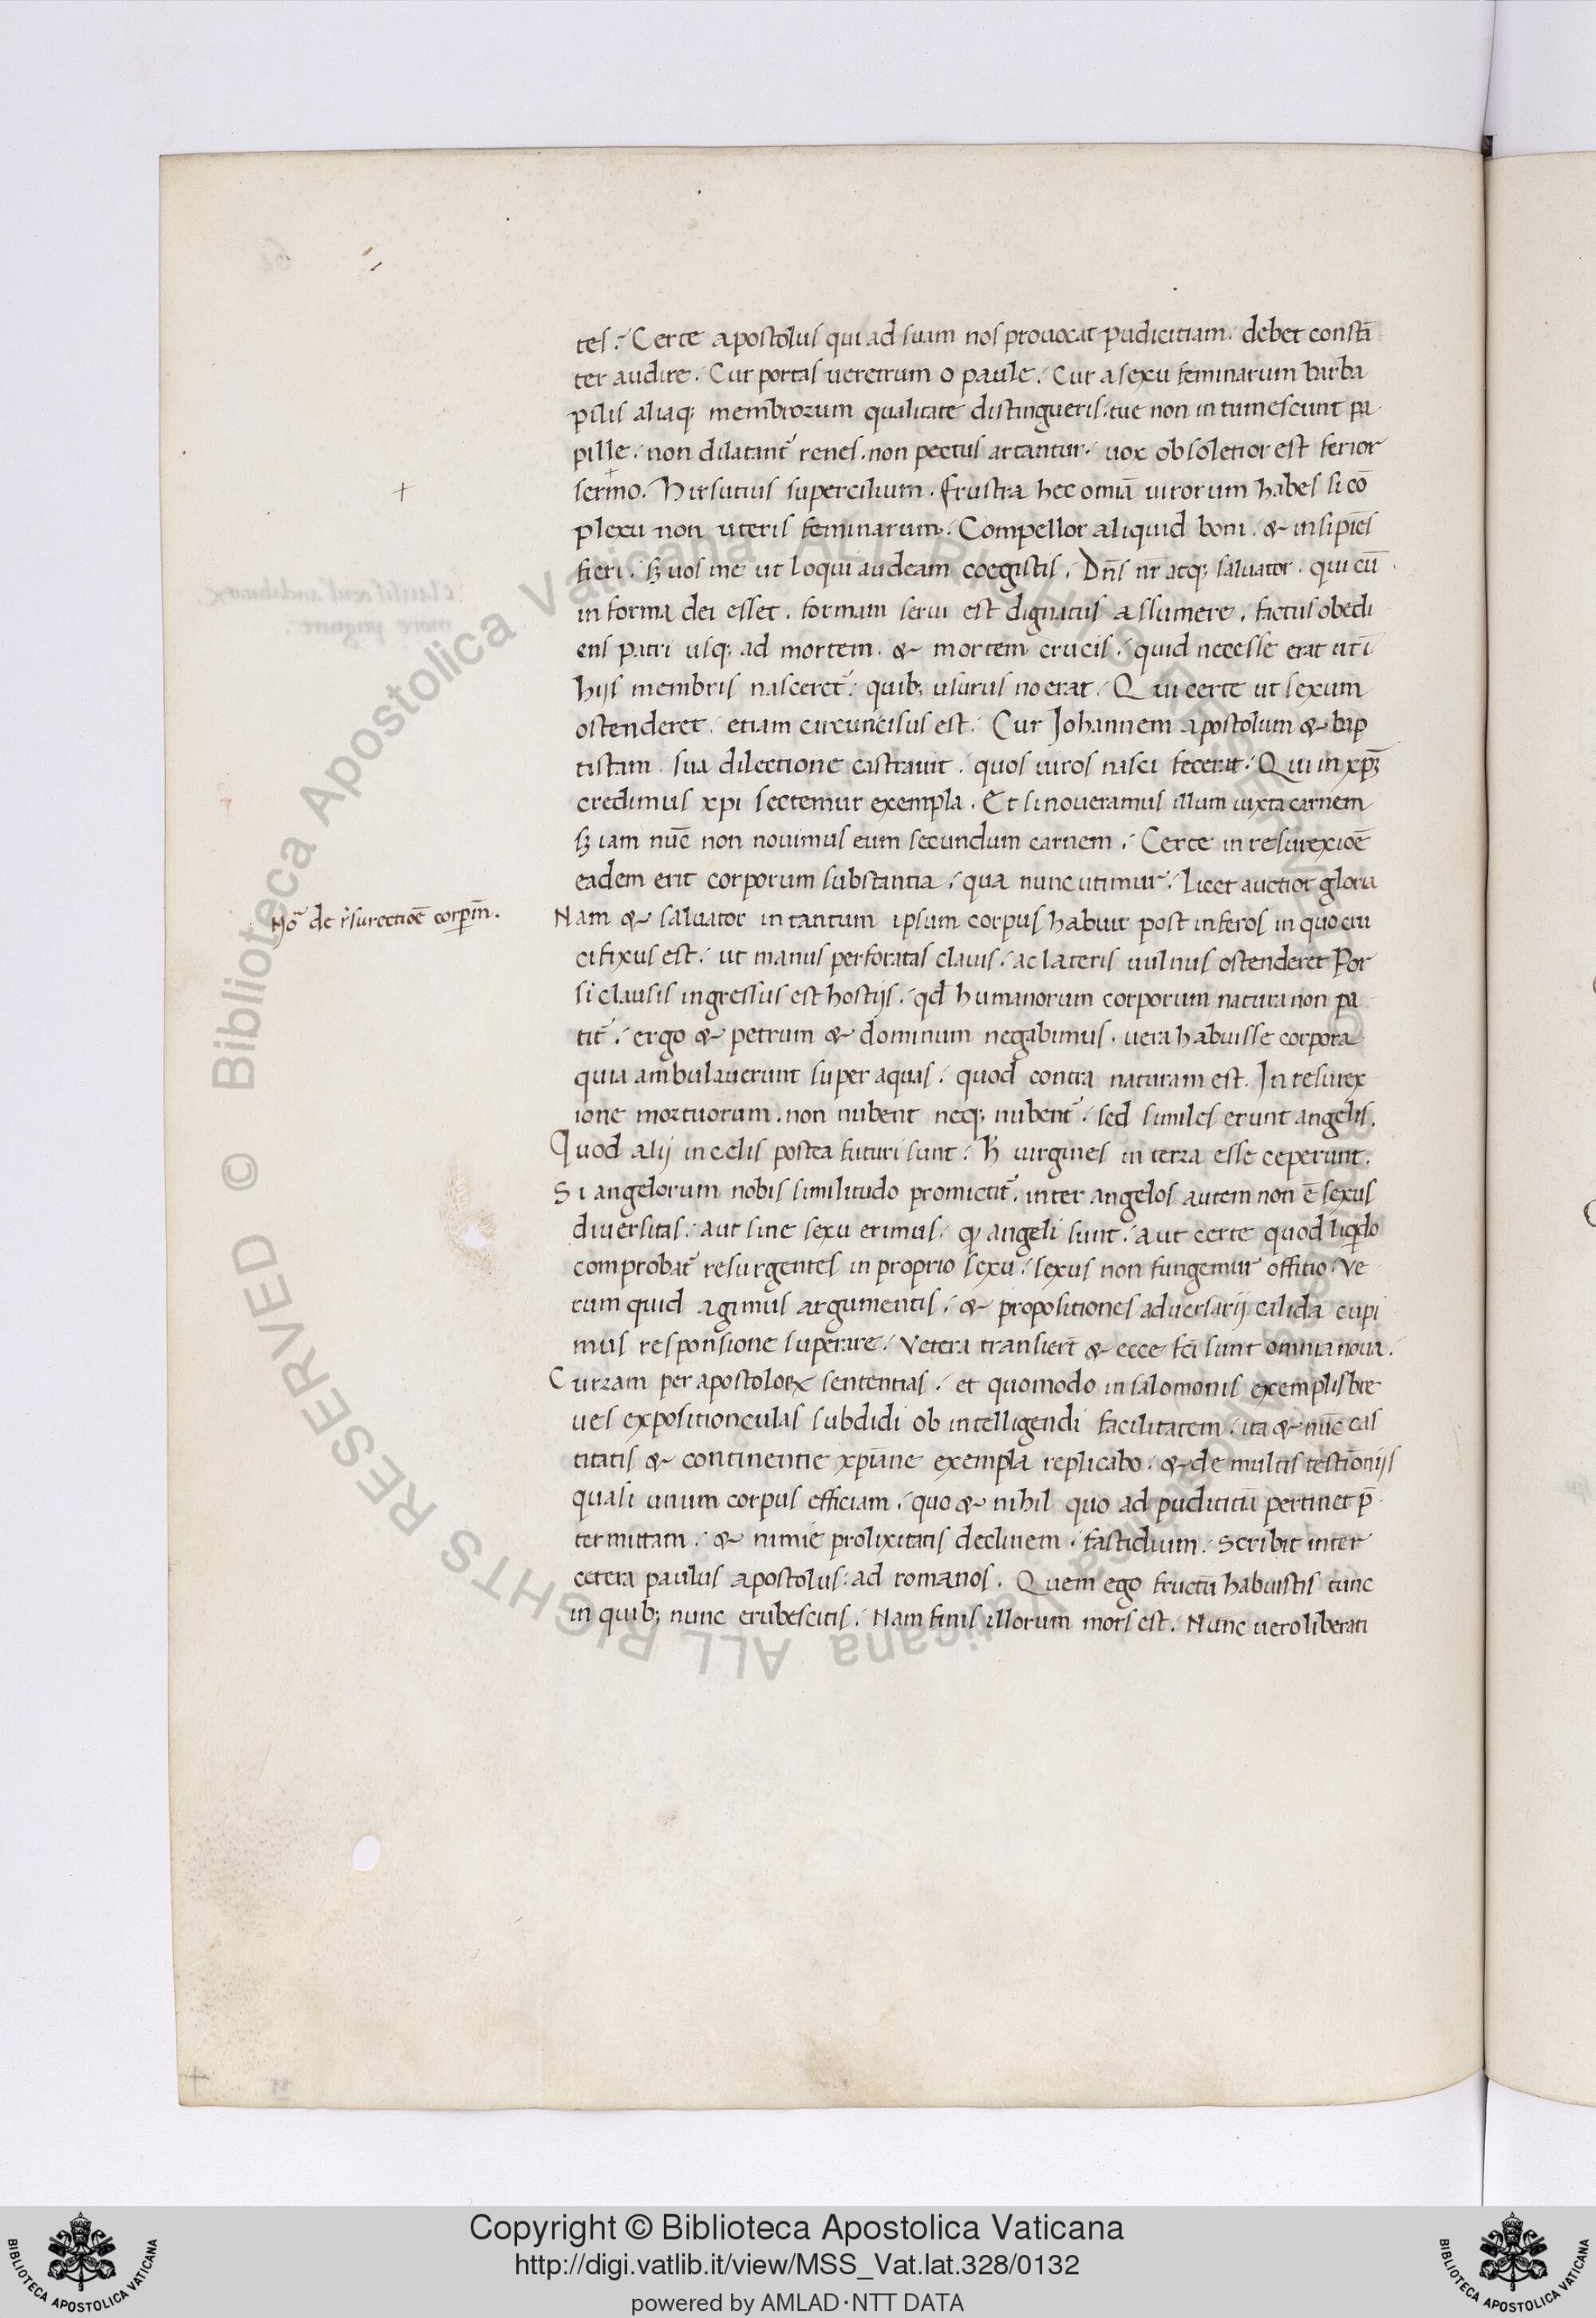 tes. Certe apostolus qui ad suam nos prouocat pudicitiam. debet constā
ter audire. Cur portas ueretrum o paule. Cur a sexu feminarum barba
pilis aliaq; membrorum qualitate distingueris. tue non intumescunt pa
pille. non dilatant᷑ renes. non pectus artantur. uox obsoletior est ferior
sermo. Hirsutius supercilium. frustra hec omīa uirorum habes si cō
plexu non uteris feminarum. Compellor aliquid boni. & insipiēs
fieri. sꝫ uos me ut loqui audeam coegistis. Dn̄s nr̄ atq; saluator. qui cū
in forma dei esset. formam serui est dignatus assumere. factus obedi
ens patri usq; ad mortem. & mortem crucis. quid necesse erat ut ī
hijs membris nasceret᷑. quib; usurus no erat. Qui certe ut sexum
ostenderet. etiam circuncisus est. Cur Johannem apostolum & bap
tistam sua dilectione castrauit. quos uiros nasci fecerat. Qui in xp̄ꝫ
credimus xpi sectemur exempla. Et si noueramus illum iuxta carnem
sꝫ iam nūc non nouimus eum secundum carnem. Certe in resurexioē
eadem erit corporum substantia. qua nunc utimur. licet auctior gloria
Nō de r̄surectioē corpm̄.
Nam & saluator in tantum ipsum corpus habuit post inferos in quo cru
cifixus est. ut manus perforatas clauis. ac lateris uulnus ostenderet Por
si clausis ingressus est hostijs. qd humanorum corporum natura non pa
tit᷑. ergo & petrum & dominum negabimus. uera habuisse corpora
quia ambulauerunt super aquas. quod contra naturam est. In resurex
ione mortuorum. non nubent neq; nubent᷑. sed similes erunt angelis.
Quod alij in celis postea futuri sunt. ħ uirgines in terra esse ceperunt.
Si angelorum nobis similitudo promictit᷑. inter angelos autem non ē sexus
diuersitas. aut sine sexu erimus. qꝫ angeli sunt. aut certe quod liqdo
comprobat᷑ resurgentes in proprio sexu. sexus non fungemur offitio. Ve
rum quid agimus argumentis. & propositiones aduersarij calida cupi
mus responsione superare. Vetera transiert̄ & ecce fci sunt omnia noua.
Curram per apostoloꝝ sententias. et quomodo in salomonis exemplis bre
ues expositionculas subdidi ob intelligendi facilitatem. ita & nūc cas
titatis & continentie xpiane exempla replicabo. & de multis testiōnijs
quasi unum corpus efficiam. quo & nihil quo ad pudicitiā pertinet p̄
termittam. & nimie prolixitatis declinem. fastidium. Scribit inter
cetera paulus apostolus. ad romanos. Quem ego fructū habuistis tunc
in quib; nunc erubescitis. Nam finis illorum mors est. Nunc uero liberati
© Biblioteca Apostolica Vaticana ALL RIGHTS RESERVED
Copyright © Biblioteca Apostolica Vaticana
http://digi.vatlib.it/view/MSS_Vat.lat.328/0132
powered by AMLAD·NTT DATA
BIBLIOTECA APOSTOLICA VATICANA
BIBLIOTECA APOSTOLICA VATICANA